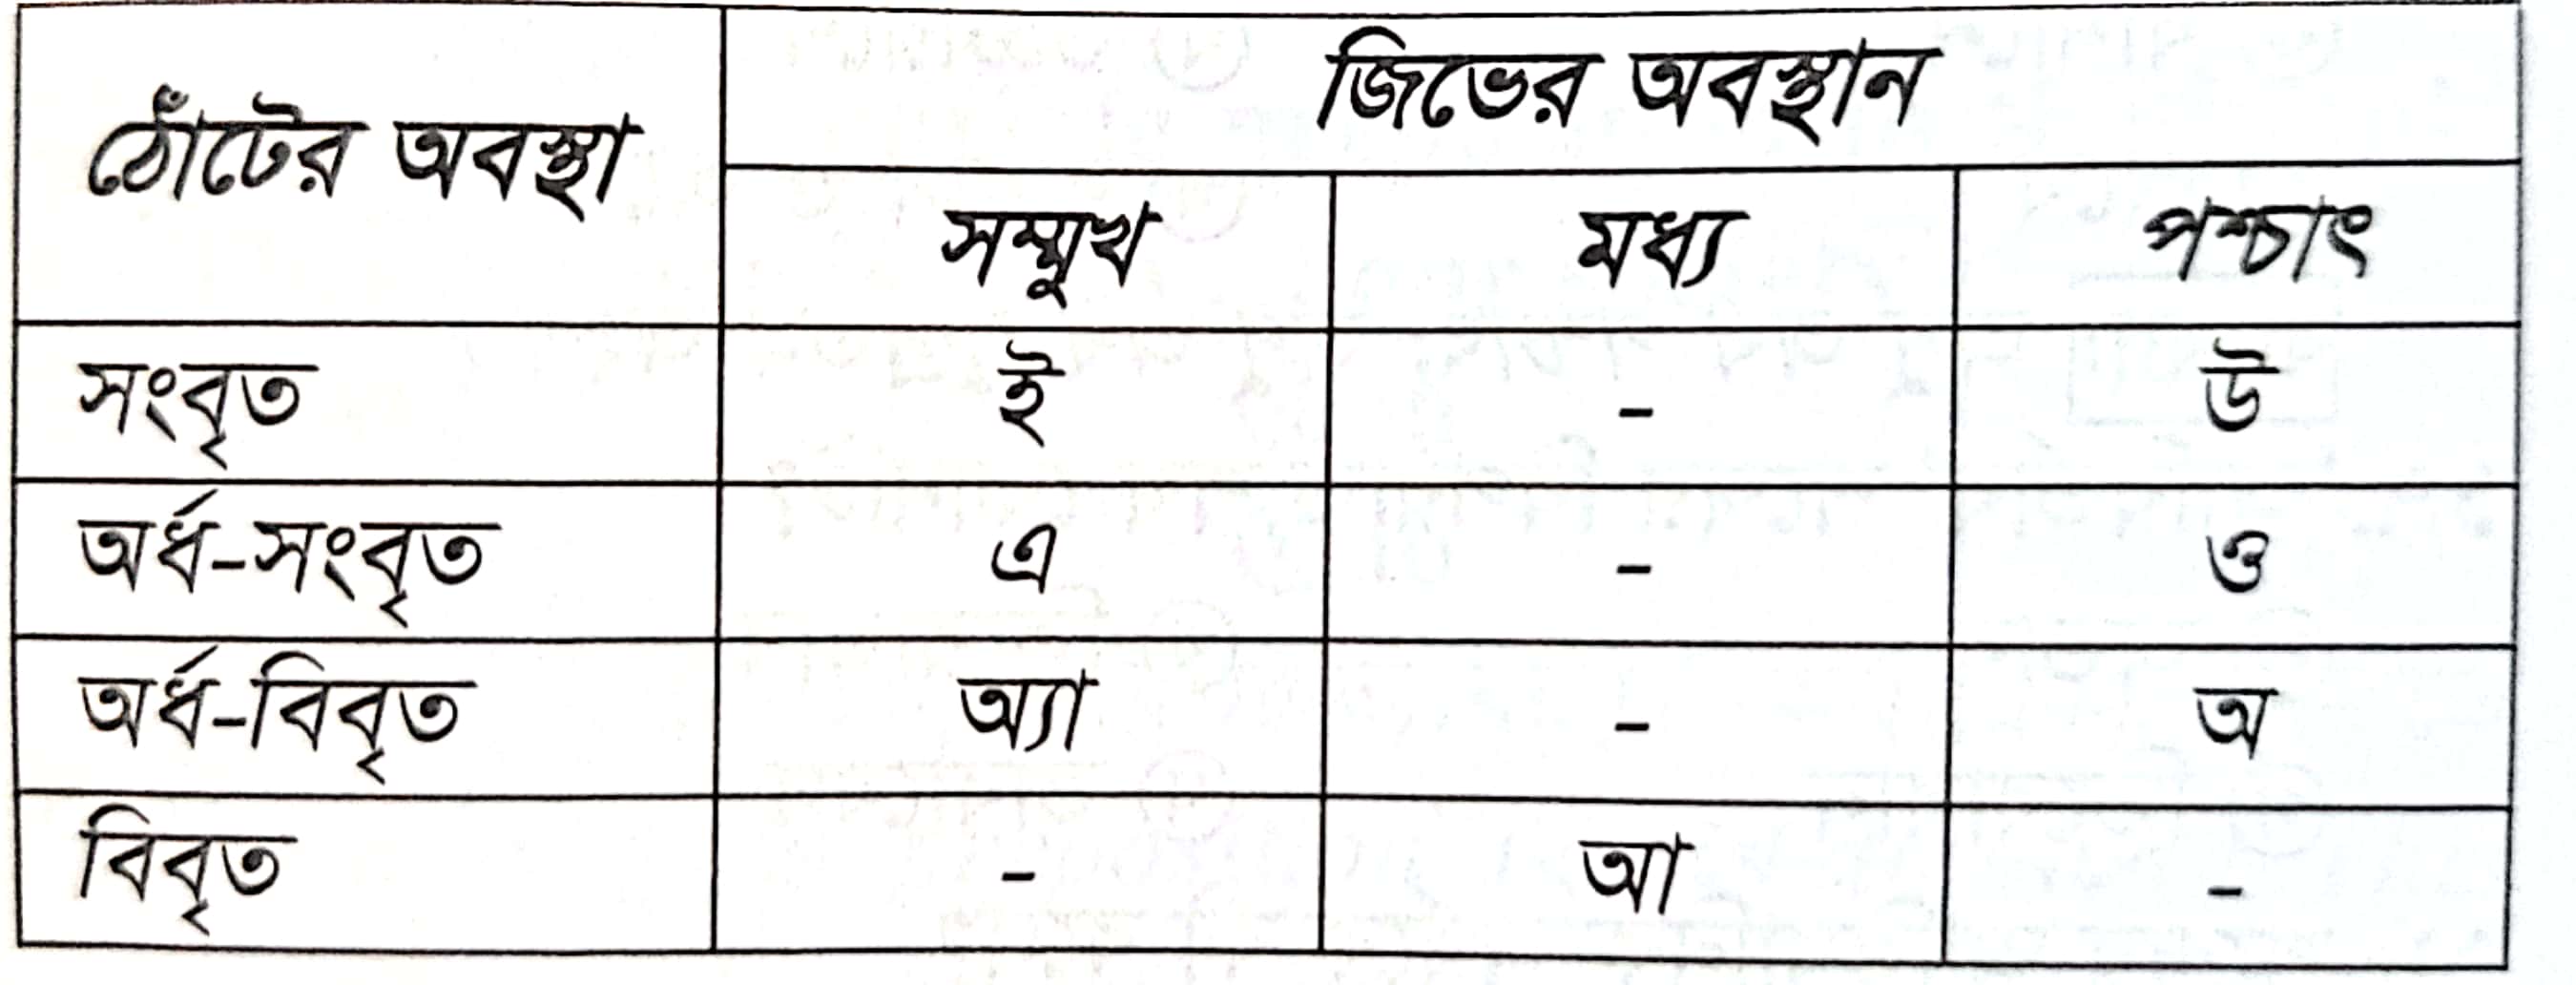 ঠোঁটের অবস্থা
জিভের অবস্থান
সম্মুখ মধ্য পশ্চাৎ
সংবৃত ই - উ
অর্ধ-সংবৃত এ - ও
অর্ধ-বিবৃত অ্যা - অ
বিবৃত - আ -